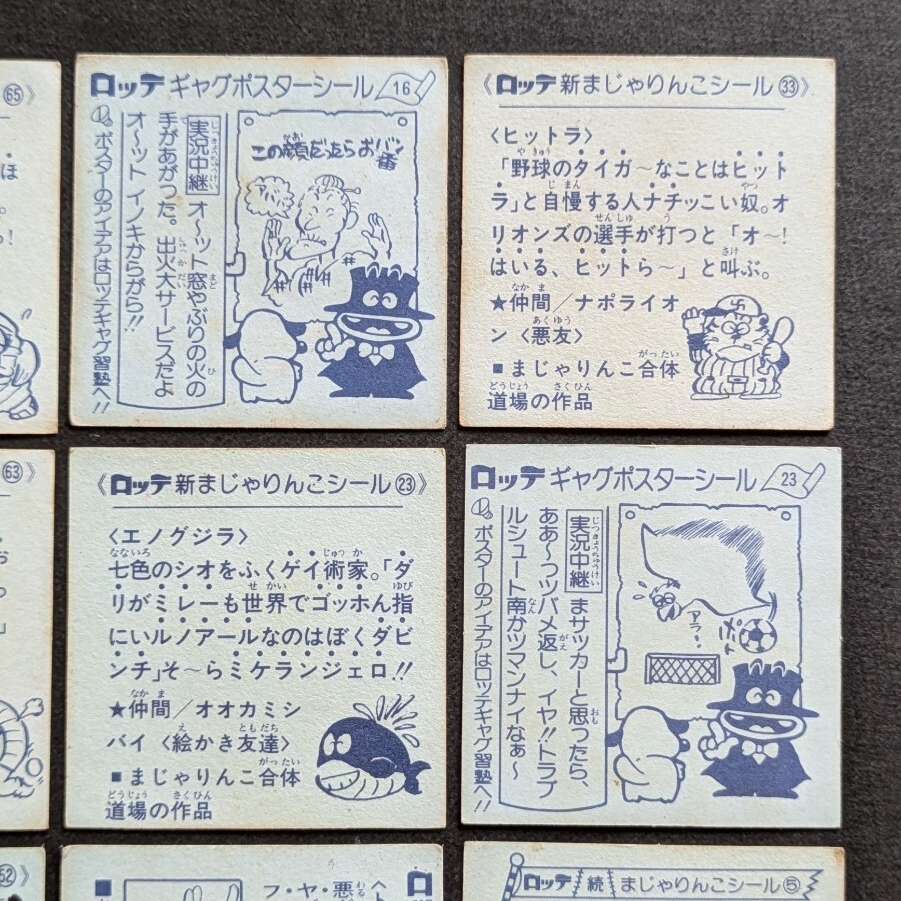 65》
ほ
ロッテ ギャグポスターシール 16
実況中継 オ〜ット窓やぶりの火の
手があがった。出火大サービスだよ
オ〜ット イノキからがら!!
ポスターのアイデアはロッテギャグ習塾へ!!
この顔だったらお八番
《ロッテ 新まじゃりんこシール㉝》
〈ヒットラ〉
「野球のタイガ〜なことはヒット
ラ」と自慢する人ナチッこい奴。オ
リオンズの選手が打つと「オ〜!
はいる、ヒットら〜」と叫ぶ。
★仲間/ナポライオ
ン〈悪友〉
■まじゃりんこ合体
道場の作品
63》
《ロッテ 新まじゃりんこシール㉓》
〈エノグジラ〉
七色のシオをふくゲイ術家。「ダ
リがミレーも世界でゴッホん指
にいルノアールなのはぼくダビ
ンチ」そ〜らミケランジェロ!!
★仲間/オオカミシ
バイ〈絵かき友達〉
■まじゃりんこ合体
道場の作品
ロッテ ギャグポスターシール 23
実況中継 まサッカーと思ったら、
ああ〜っツバメ返し、イヤ!!トラブ
ルシュート南かツマンナイなぁ〜
ポスターのアイデアはロッテギャグ習塾へ!!
アラ!
52》
フ・ヤ・悪
ロッテ 続 まじゃりんこシール⑤